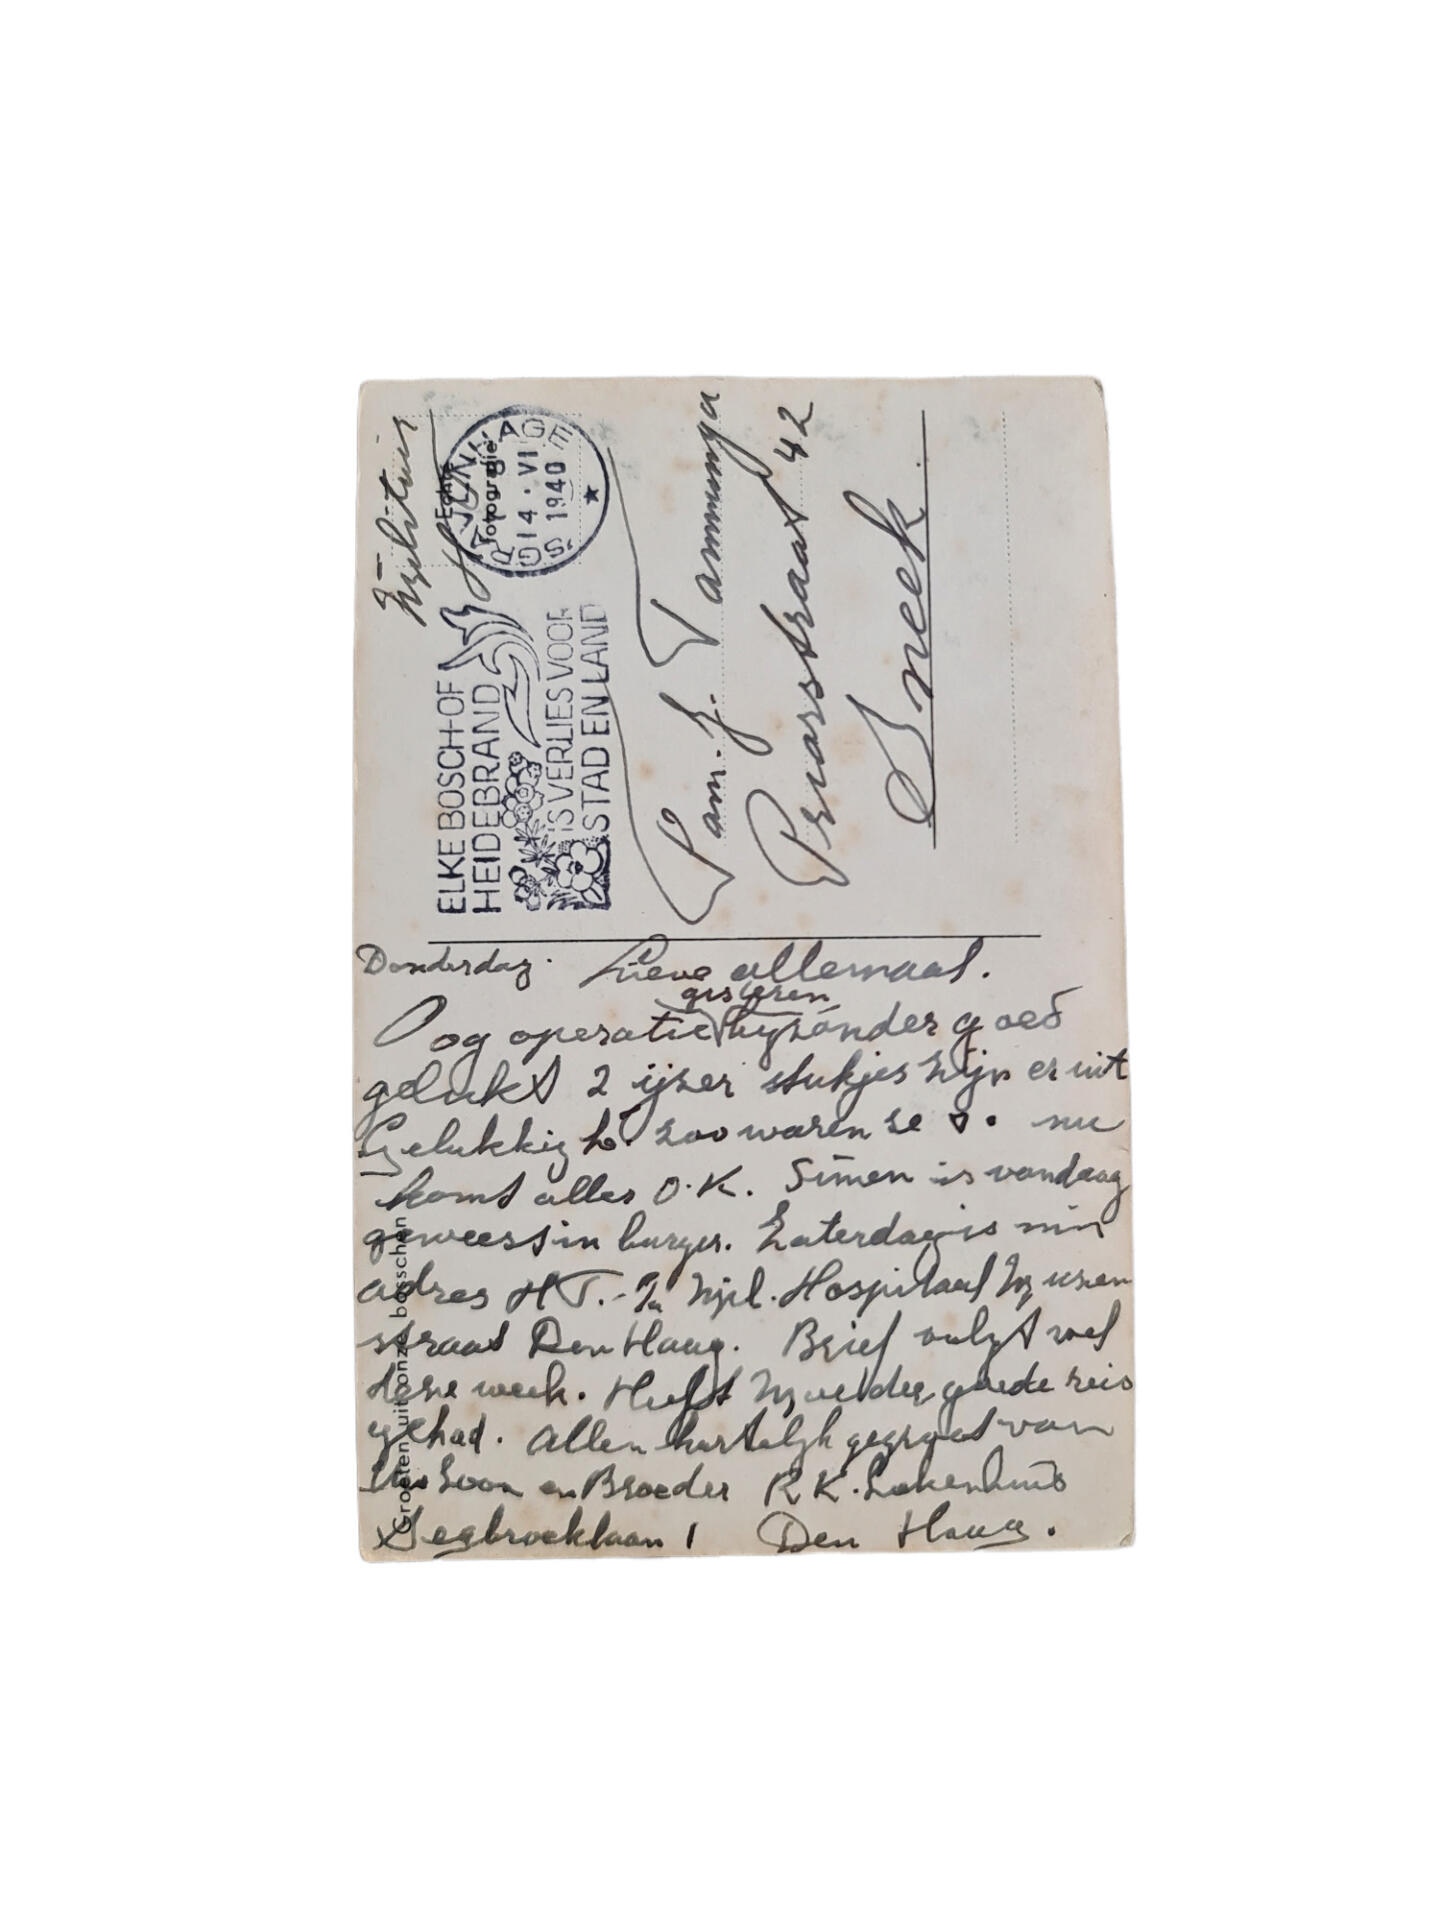 Militair
Echte
Fotografie
'S GRAVENHAGE
14.VI
1940
ELKE BOSCH-OF
HEIDEBRAND
IS VERLIES VOOR
STAD EN LAND
Fam. J. Tamminga
Prinsstraat 42
Sneek
Donderdag. Lieve allemaal.
gisteren
Oog operatie byzonder goed
gelukt 2 ijzer stukjes zijn er uit
Gelukkig hé. zoo waren ze nu
komt alles O.K. Simen is vandaag
geweest in burger. Zaterdag is mijn
adres H.T. Mil. Hospitaal Muzen
straat Den Haag. Brief volgt wel
deze week. Heeft Moeder goede reis
gehad. Allen hartelijk gegroet van
Uw Zoon en Broeder R.K. Ziekenhuis
Segbroeklaan 1 Den Haag.
Groeten uit onze bosschen